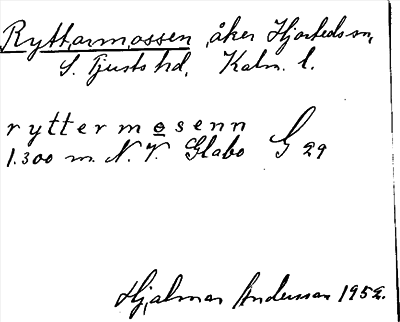 Ryttarmossen åker Hjorteds sn,
S. Tjusts hd, Kalm. l.
ryttermosenn
1.300 m. N.V. Glabo G 29
Hjalmar Andersson 1952.